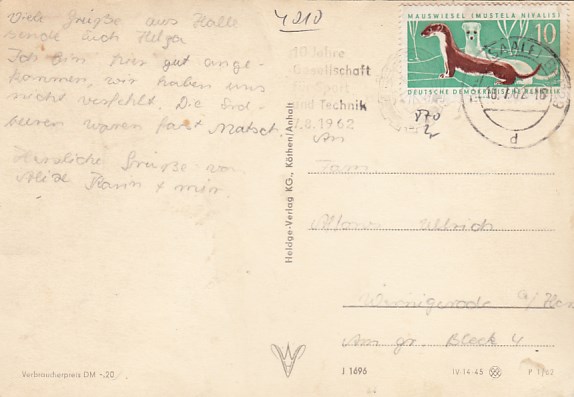 Viele Grüße aus Halle
sende euch Helga
Ich bin hier gut ange-
kommen, wir haben uns
nicht verfehlt. Die Erd-
beeren waren fast Matsch.
Herzliche Grüße von
+ mir.
4210
MAUSWIESEL (MUSTELA NIVALIS)
10
DEUTSCHE DEMOKRATISCHE REPUBLIK
10 Jahre
Gesellschaft
Sport
und Technik
7.8.1962
SAALE
d
An
Fam.
Ullrich
Wernigerode a/Harz
Am gr. Bleek 4
Heldge-Verlag KG., Köthen/Anhalt
Verbraucherpreis DM -,20
J 1696
IV-14-45
P 1/62